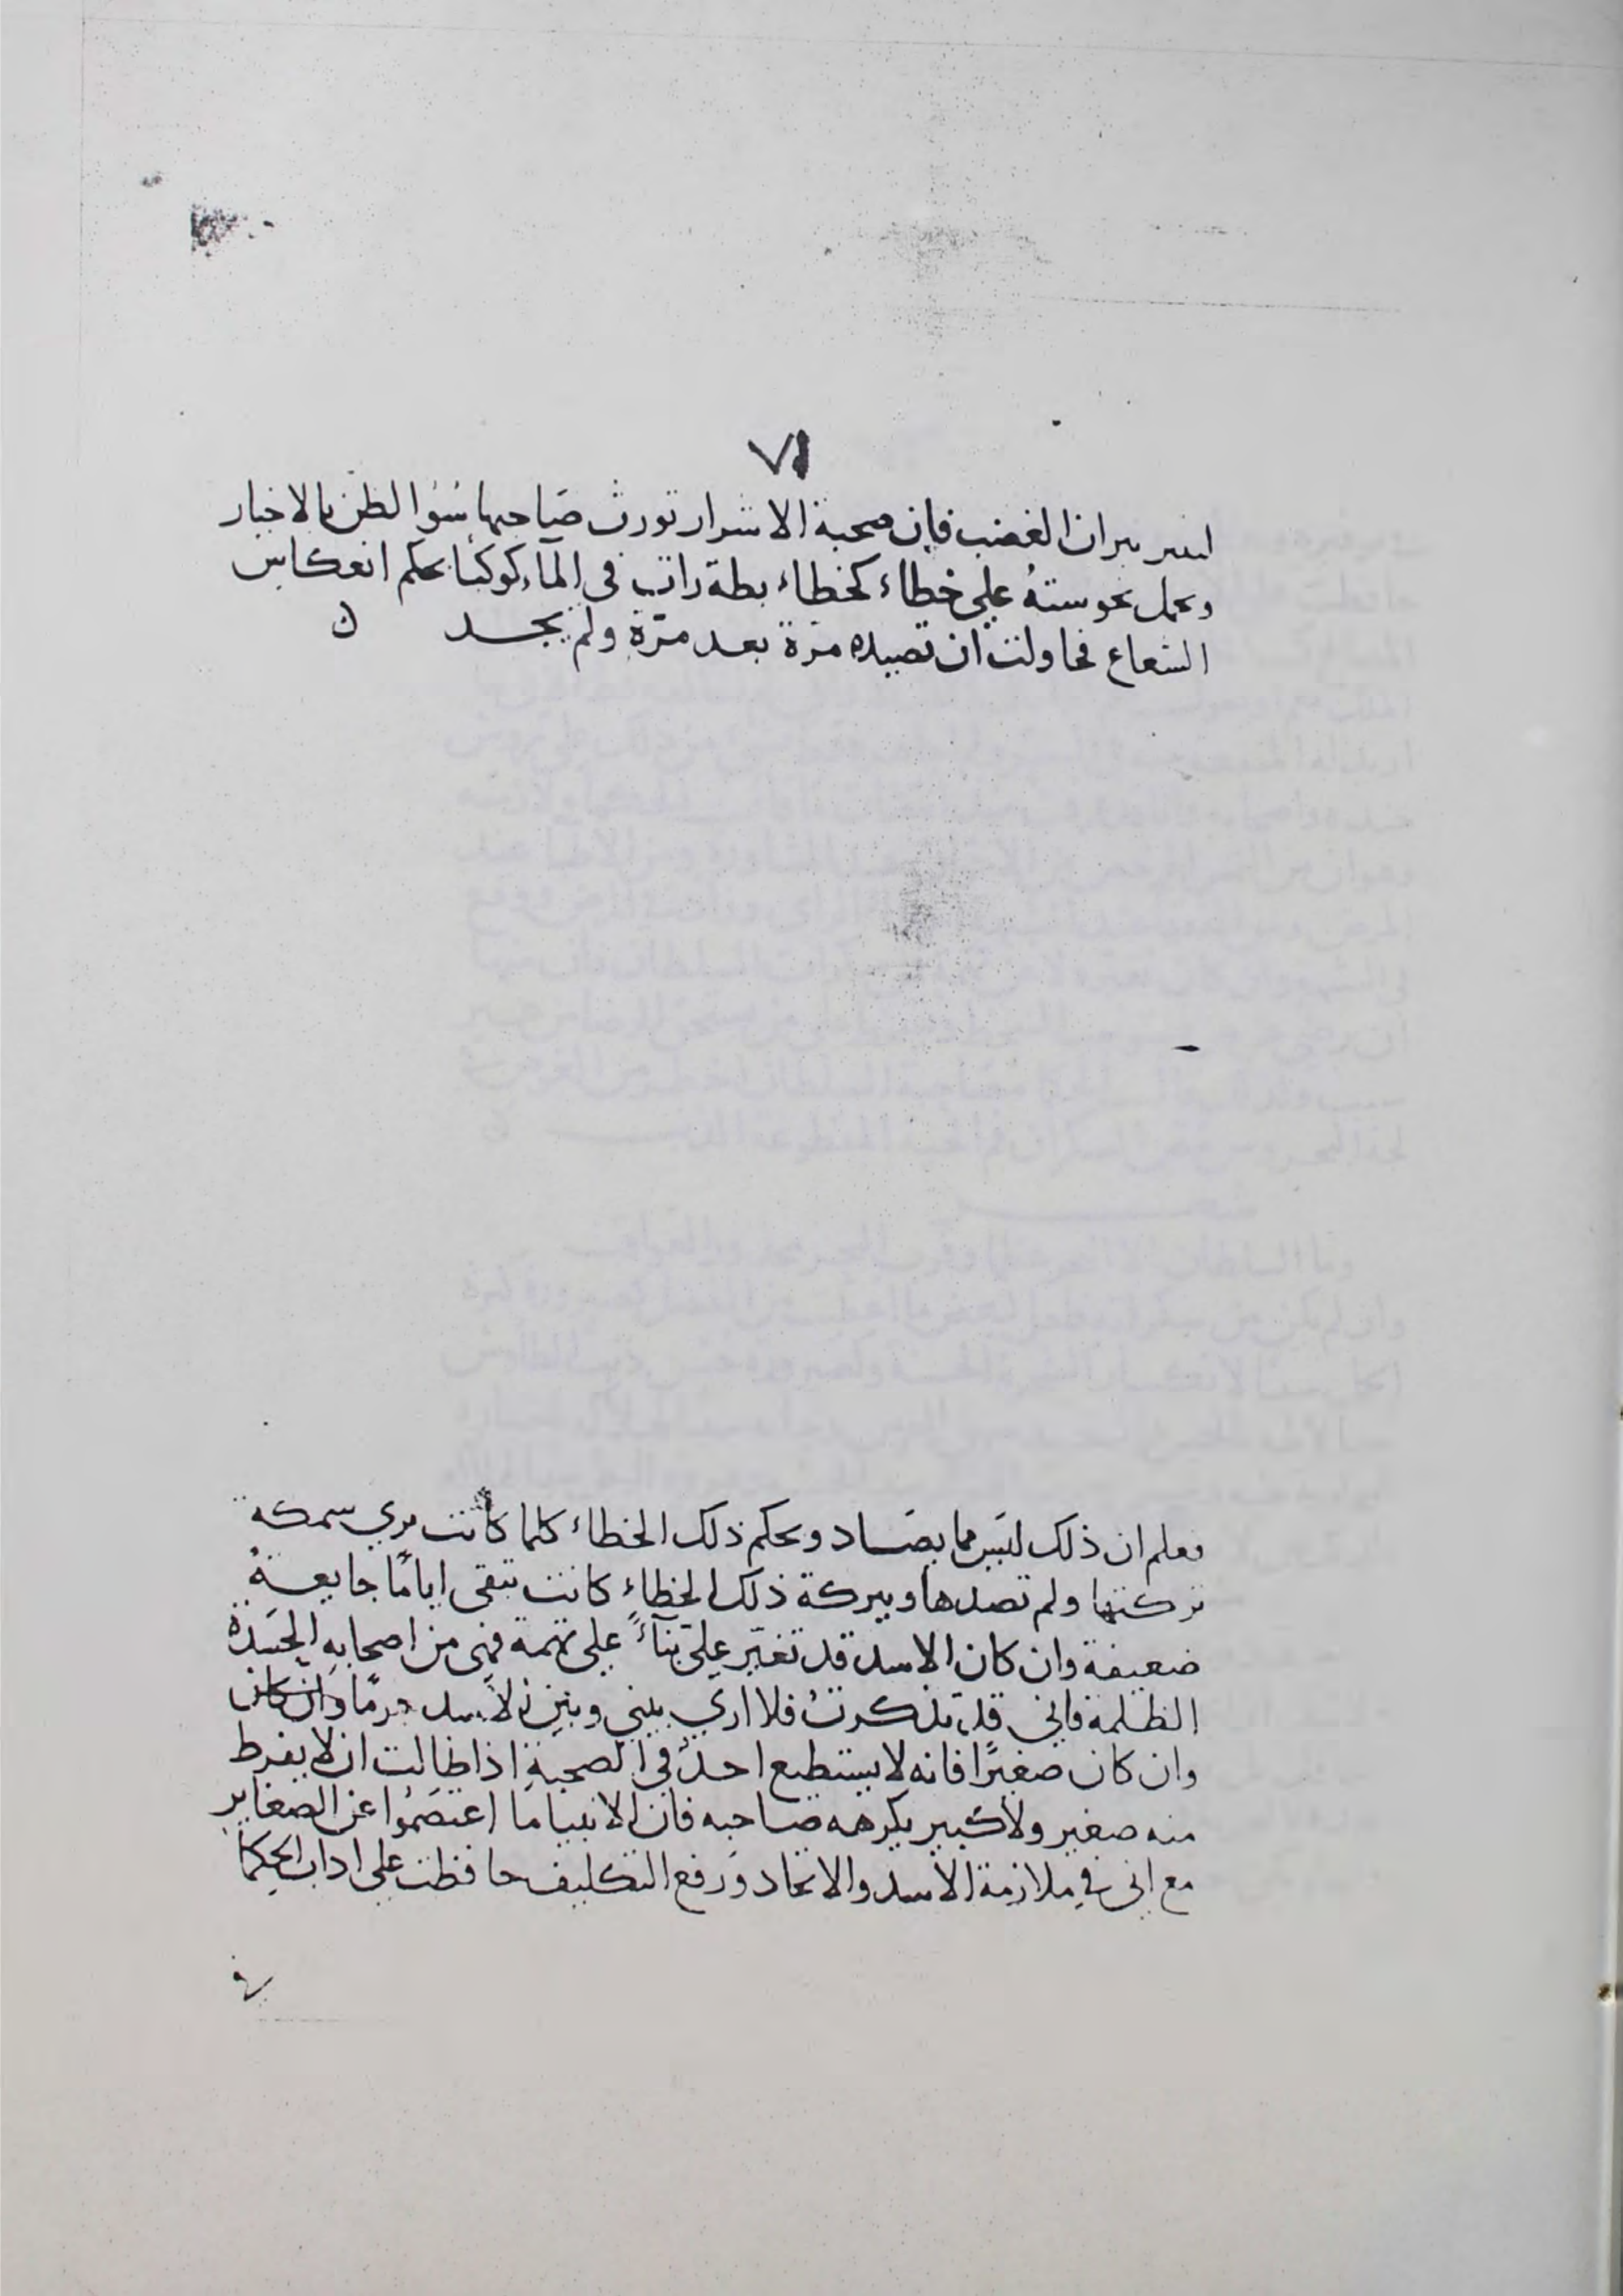 ٧١
نيران الغضب فان صحبة الاشرار تورث صَاحبها سُوٓ الظن بالاخيار
وتحمل نحوستهُ على خطاء كخطاء بطة راتب في المآء كوكبًا بحكم انعكاس
الشعاع فحاولت ان تصيده مرة بعد مرّة ولم يجد ن
فعلم ان ذلك ليَس مما يصَاد وبحكم ذلك الخطاء كلما كانت تري سمكة
تركتها ولم تصدها وببركة ذلك الخطاءِ كانت تبقى ايامًا جايعةً
ضعيفة وان كان الاسد قد تغيّر عليّ بنآءً على تهمة فهى من اصحابهِ الحَسَدة
الظلمة فاني قد تذكرتُ فلا اري بيني وبين الاسد جرمًا وان كان
وان كان صغيرًا فانه لا يستطيع احدٌ في الصحبة اذا طالت ان لا يفرط
منه صغير ولا كبير يكرهه صاحبه فان الانبيا مَا اعتصَمُوا عن الصغاير
مع اني في ملازمة الاسد والاتحاد وَرفع التكليف حافظت على اداب الحكما
في